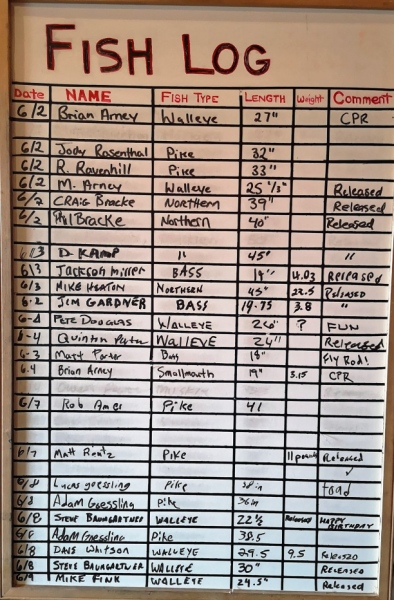 FISH LOG
Date NAME FISH TYPE LENGTH Weight Comment
6/2 Brian Arney Walleye 27" CPR
6/2 Jody Rosenthal Pike 32"
6/2 R. Ravenhill Pike 33"
6/2 M. Arney Walleye Released
6/2 CRAIG Bracke Northern 39" Released
6/2 Bracke Northern 40" Released
6/3 D. KAMP " 45" "
6/3 Jackson Miller BASS 19" 4.03 Released
6/3 MIKE HEATON NORTHERN 45" 22.5 Released
6-2 JIM GARDNER BASS 19.75 3.8 "
6-4 PETE DOUGLAS WALLEYE 26" ? FUN
6-4 Quinton WALLEYE 24" Released
6-3 Matt Bass 18" Fly Rod!
6.4 Brian Arney Smallmouth 19" 3.15 CPR
6/7 Rob Ames Pike 41
6/7 Matt Pike 11 pounds Released
6/8 Lucas Goessling Pike 38 in toad
6/8 Adam Goessling Pike 36 in
6/8 STEVE BAUMGARTNER WALLEYE 22 ½ Released HAPPY BIRTHDAY
6/8 Adam Goessling Pike 38.5
6/8 DAVE WHITSON WALLEYE 29.5 9.5 Released
6/8 STEVE BAUMGARTNER WALLEYE 30" RELEASED
6/9 MIKE FINK WALLEYE 24.5" Released